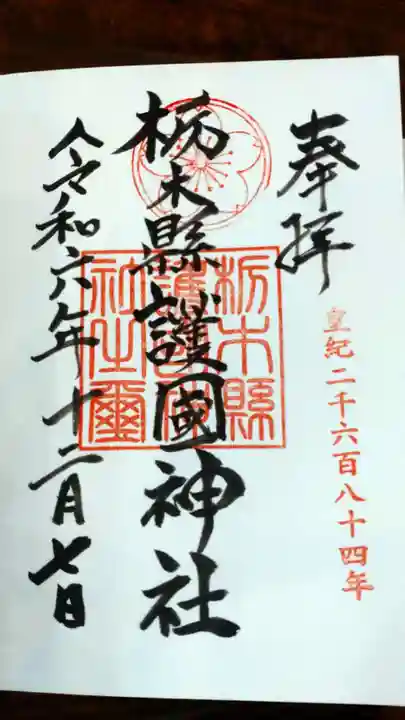 奉拝
皇紀二千六百八十四年
栃木縣護國神社
栃木縣
護國神
社之璽
令和六年十二月七日